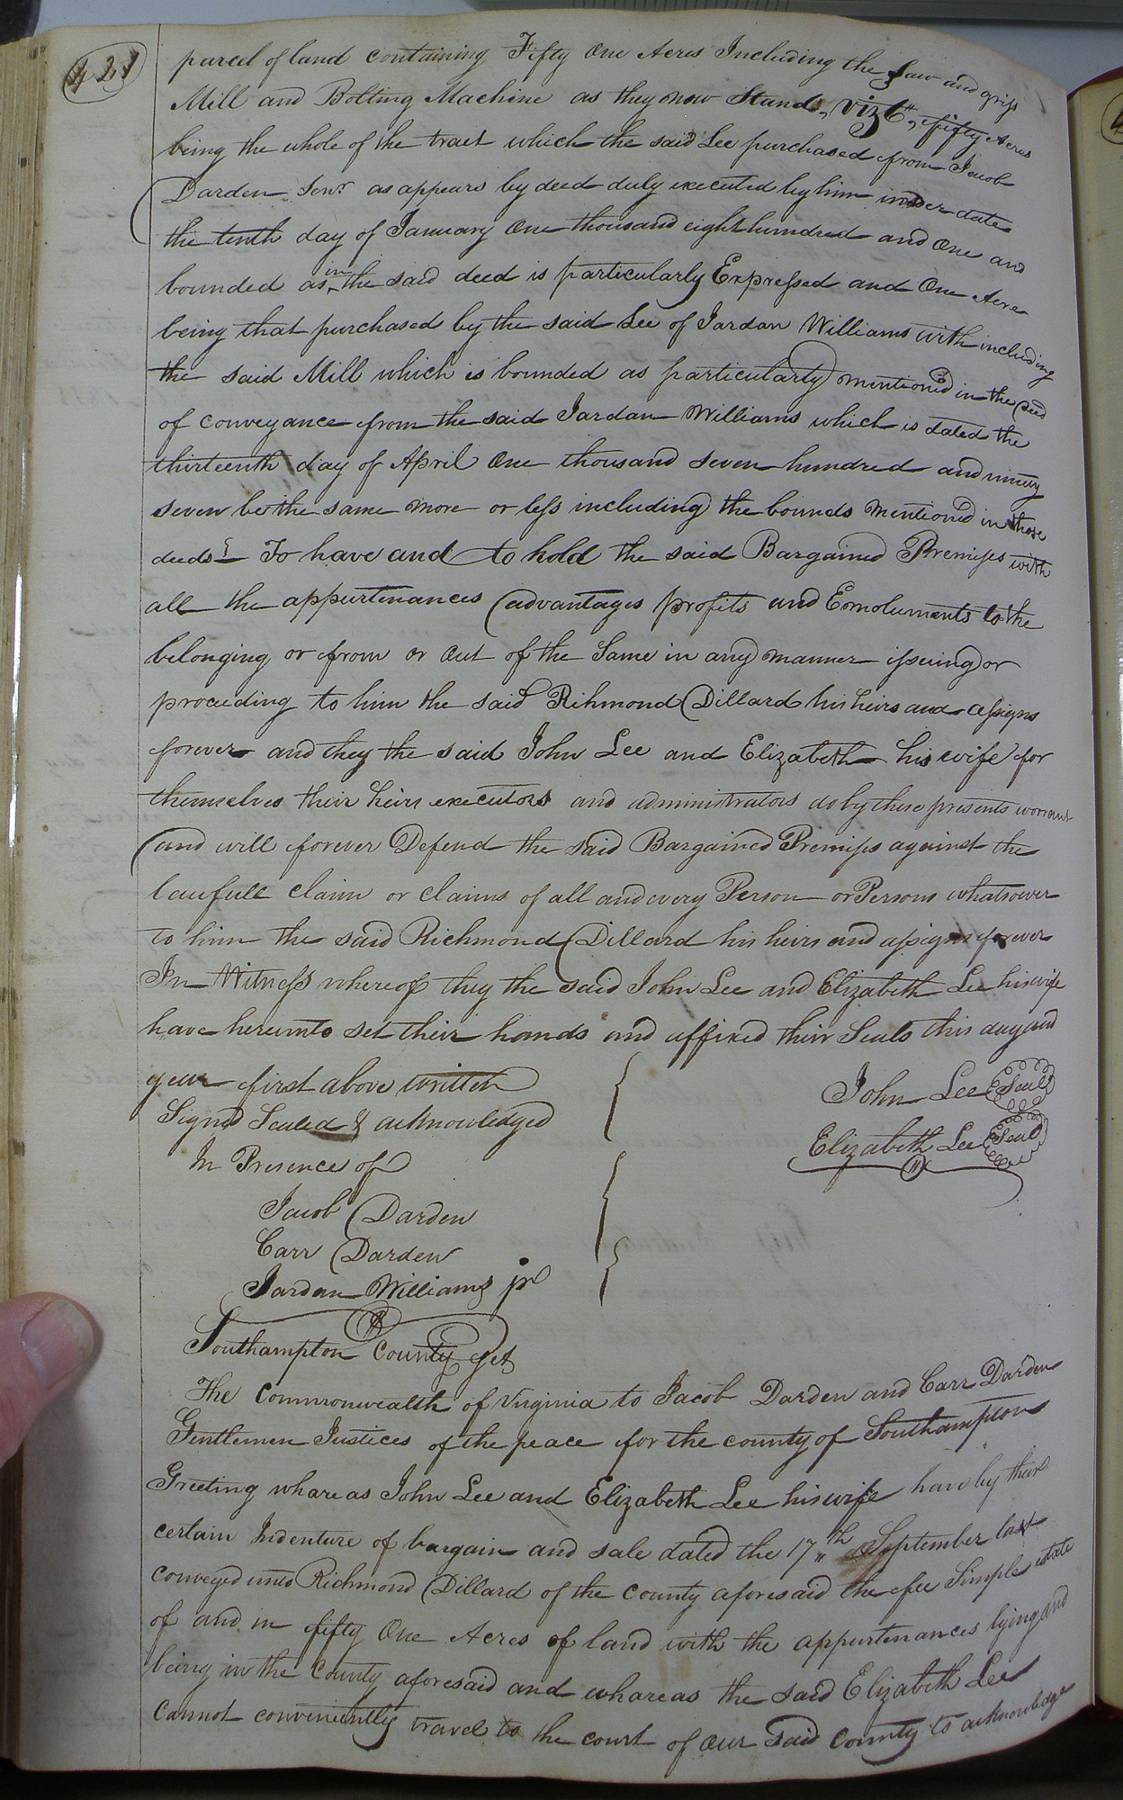 421
parcel of land containing Fifty One Acres Including the Saw and grist
Mill and Bolting Machine as they now Stand, Vizt, fifty Acres
being the whole of the tract which the said Lee purchased from Jacob
Darden Senr as appears by deed duly executed by him under date
the tenth day of January One thousand eight hundred and One and
bounded as in the said deed is particularly Expressed and One Acre
being that purchased by the said Lee of Jardan Williams with including
the said Mill which is bounded as particularly mentioned in the Deed
of conveyance from the said Jardan Williams which is dated the
thirteenth day of April One thousand seven hundred and ninety
seven be the same more or less including the bounds mentioned in those
deeds To have and to hold the said Bargained Premises with
all the appurtinances advantages profits and Emoluments to the
belonging or from or out of the Same in any manner issuing or
proceeding to him the said Rihmond Dillard his heirs and assigns
forever and they the said John Lee and Elizabeth his wife for
themselves their heirs executors and administrators do by these presents worrant
and will forever Defend the said Bargained Premises against the
lawfull claim or claims of all and every Person or Persons whatsoever
to him the said Richmond Dillard his heirs and assigns forever
In Witness whereof they the said John Lee and Elizabeth Lee his wife
have hereunto set their hands and affixed their Seals this day and
year first above written
John Lee Seal
Signd Sealed & acknowledged
Elizabeth Lee Seal
In Presence of
Jacob Darden
Carr Darden
Jardan Williams jr
Southampton County Sct
The Commonwealth of Virginia to Jacob Darden and Carr Darden
Gentlemen Justices of the peace for the county of Southampton
Greeting whareas John Lee and Elizabeth Lee his wife have by their
certain Indenture of bargain and sale dated the 17th September last
conveyed unto Richmond Dillard of the county aforesaid the fee Simple estate
of and in fifty One Acres of land with the appurtinances lying and
being in the County aforesaid and whareas the said Elizabeth Lee
Cannot conveniently travel to the court of our said County to acknowledge